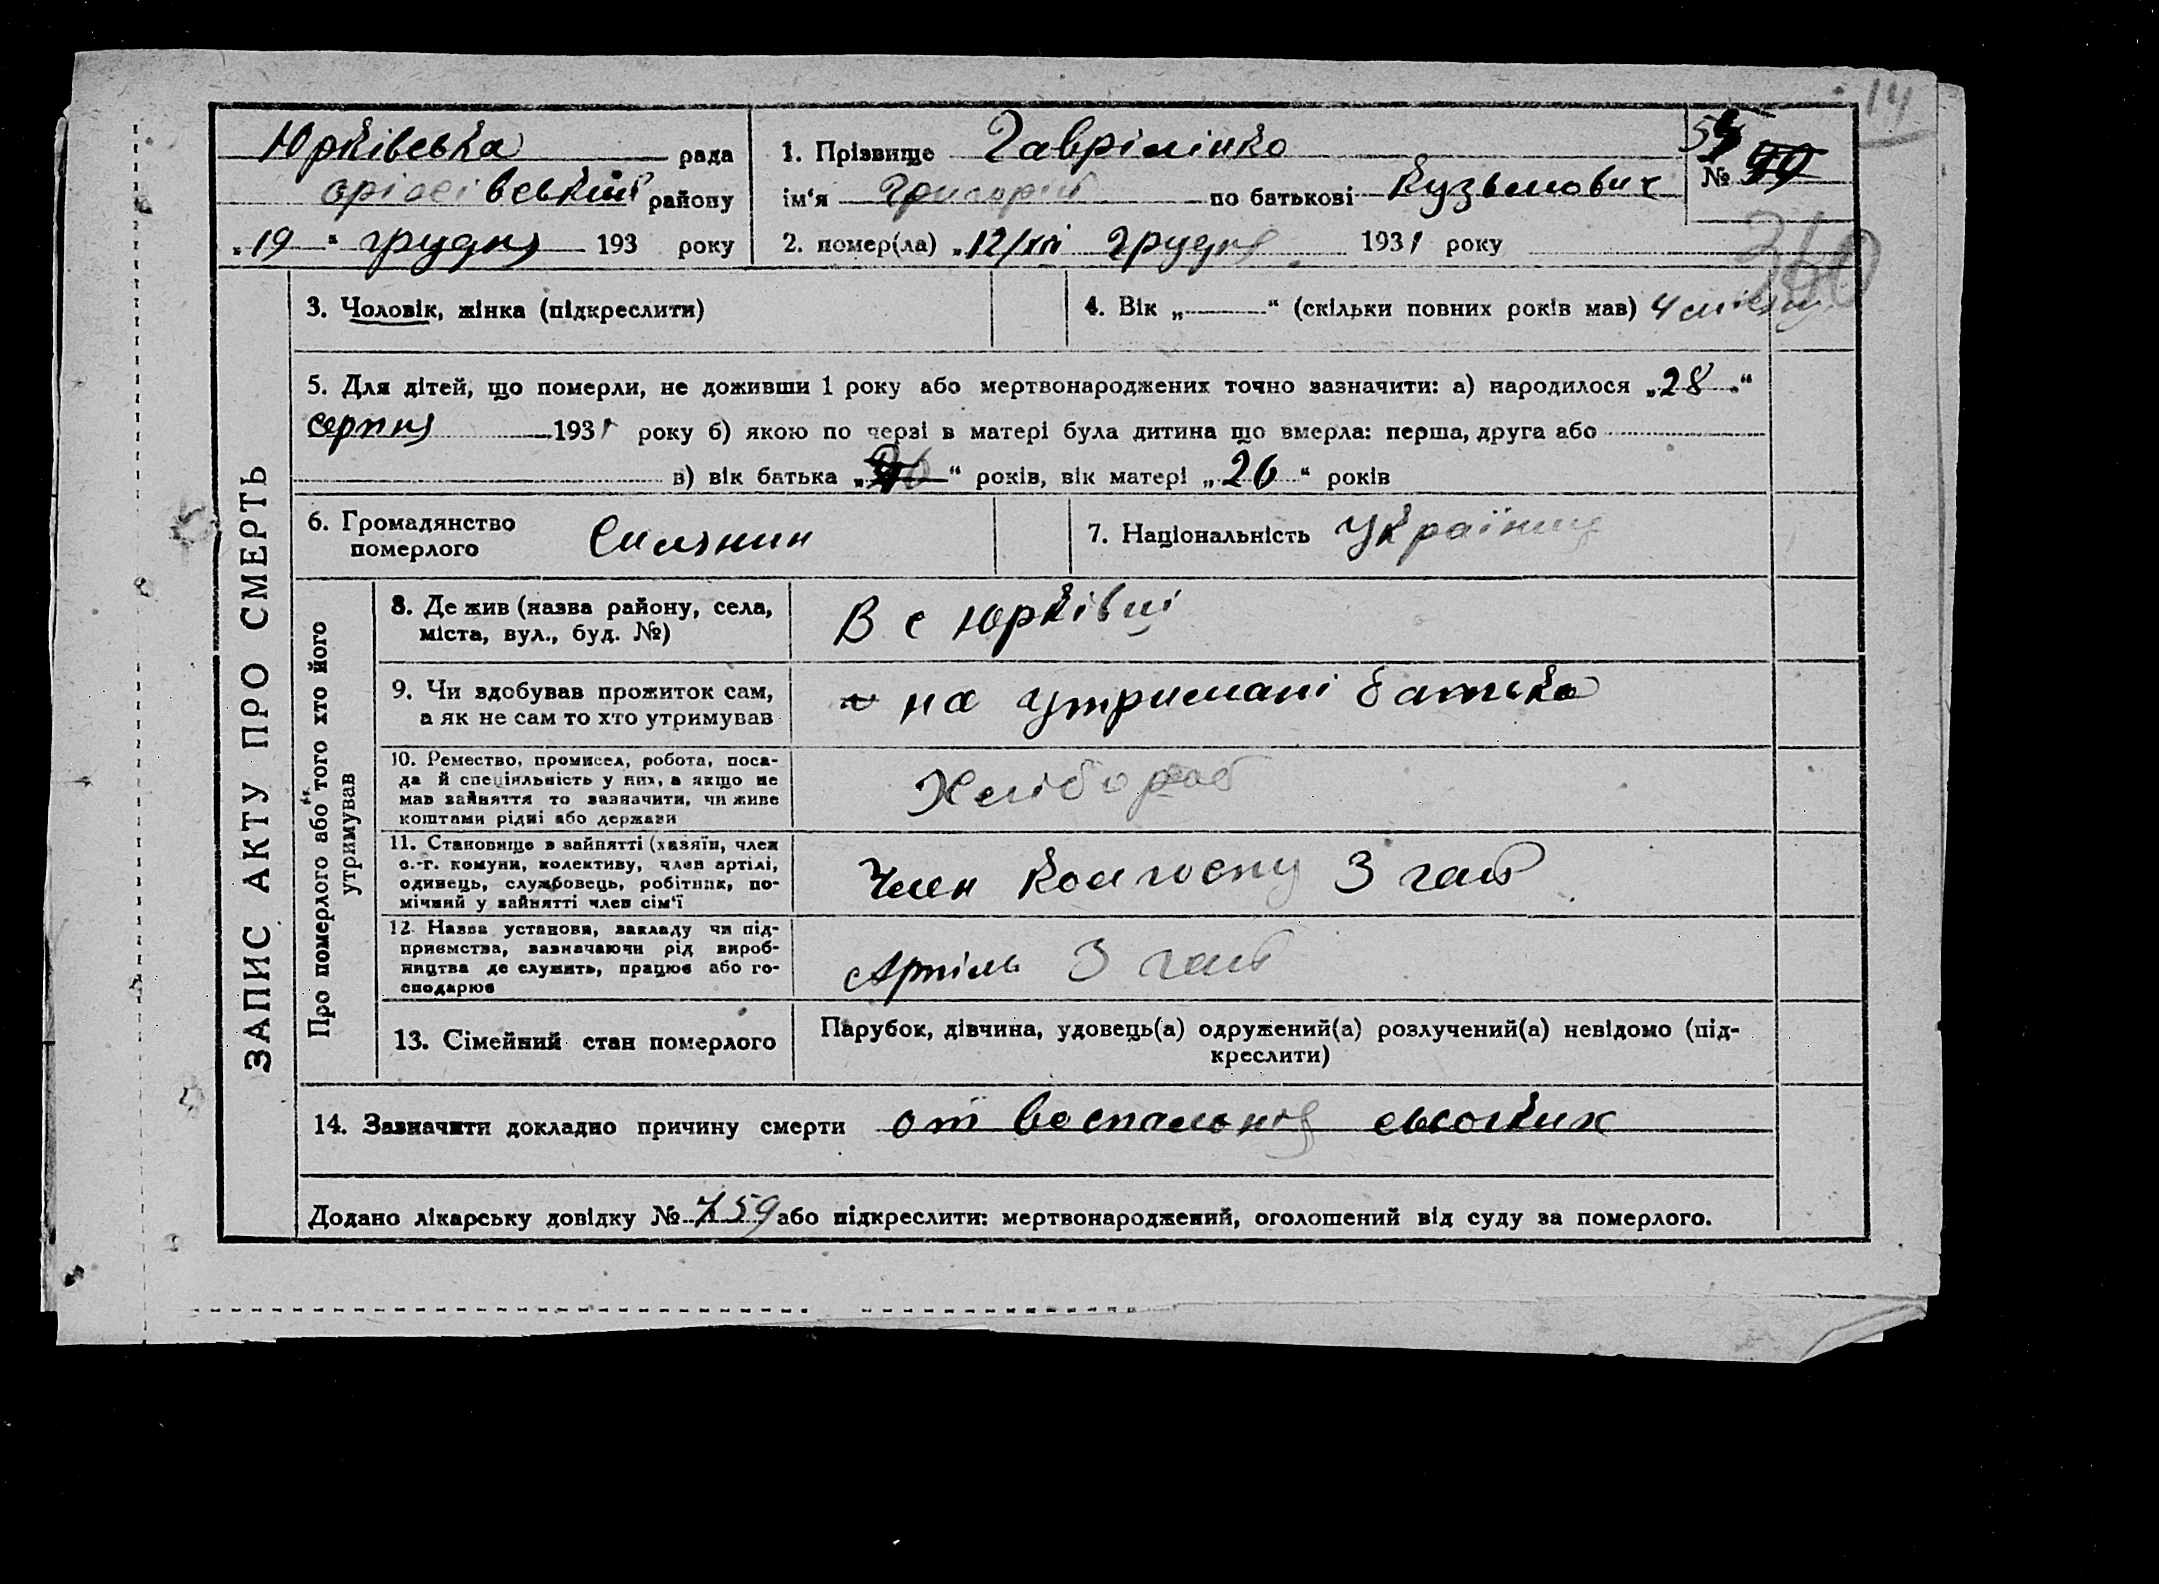 14
Юрківська рада
району
„19“ грудня 193 року
1. Прізвище Гаврілінко
ім‘я Григорій по батькові Кузьмович
№
2. помер(ла) „12/XII грудня 1931 року
340
3. Чоловік, жінка (підкреслити)
4. Вік „———“ (скільки повних років мав) 4 місяц
5. Для дітей, що померли, не доживши 1 року або мертвонароджених точно зазначити: а) народилося „28“
серпня 1931 року б) якою по черзі в матері була дитина що вмерла: перша, друга або
в) вік батька „ “ років, вік матері „26“ років
6. Громадянство
померлого
Силянин
7. Національність Українец
ЗАПИС АКТУ ПРО СМЕРТЬ
Про померлого або того хто його
утримував
8. Де жив (назва району, села,
міста, вул., буд. №)
В с Юрківці
9. Чи здобував прожиток сам,
а як не сам то хто утримував
на утримані батька
10. Ремество, промисел, робота, поса-
да й спеціяльність у них, а якщо не
мав зайняття то зазначити, чи живе
коштами рідні або держави
Хлібороб
11. Становище в зайнятті (хазяїн, член
с.-г. комуни, колективу, член артілі,
одинець, службовець, робітник, по-
мічний у зайнятті член сім‘ї
Член колгоспу З
12. Назва установи, закладу чи під-
приємства, зазначаючи рід вироб-
ництва де служить, працює або го-
сподарює
Артіль З
13. Сімейний стан померлого
Парубок, дівчина, удовець(а) одружений(а) розлучений(а) невідомо (під-
креслити)
14. Зазначити докладно причину смерти от
Додано лікарську довідку № 759 або підкреслити: мертвонароджений, оголошений від суду за померлого.